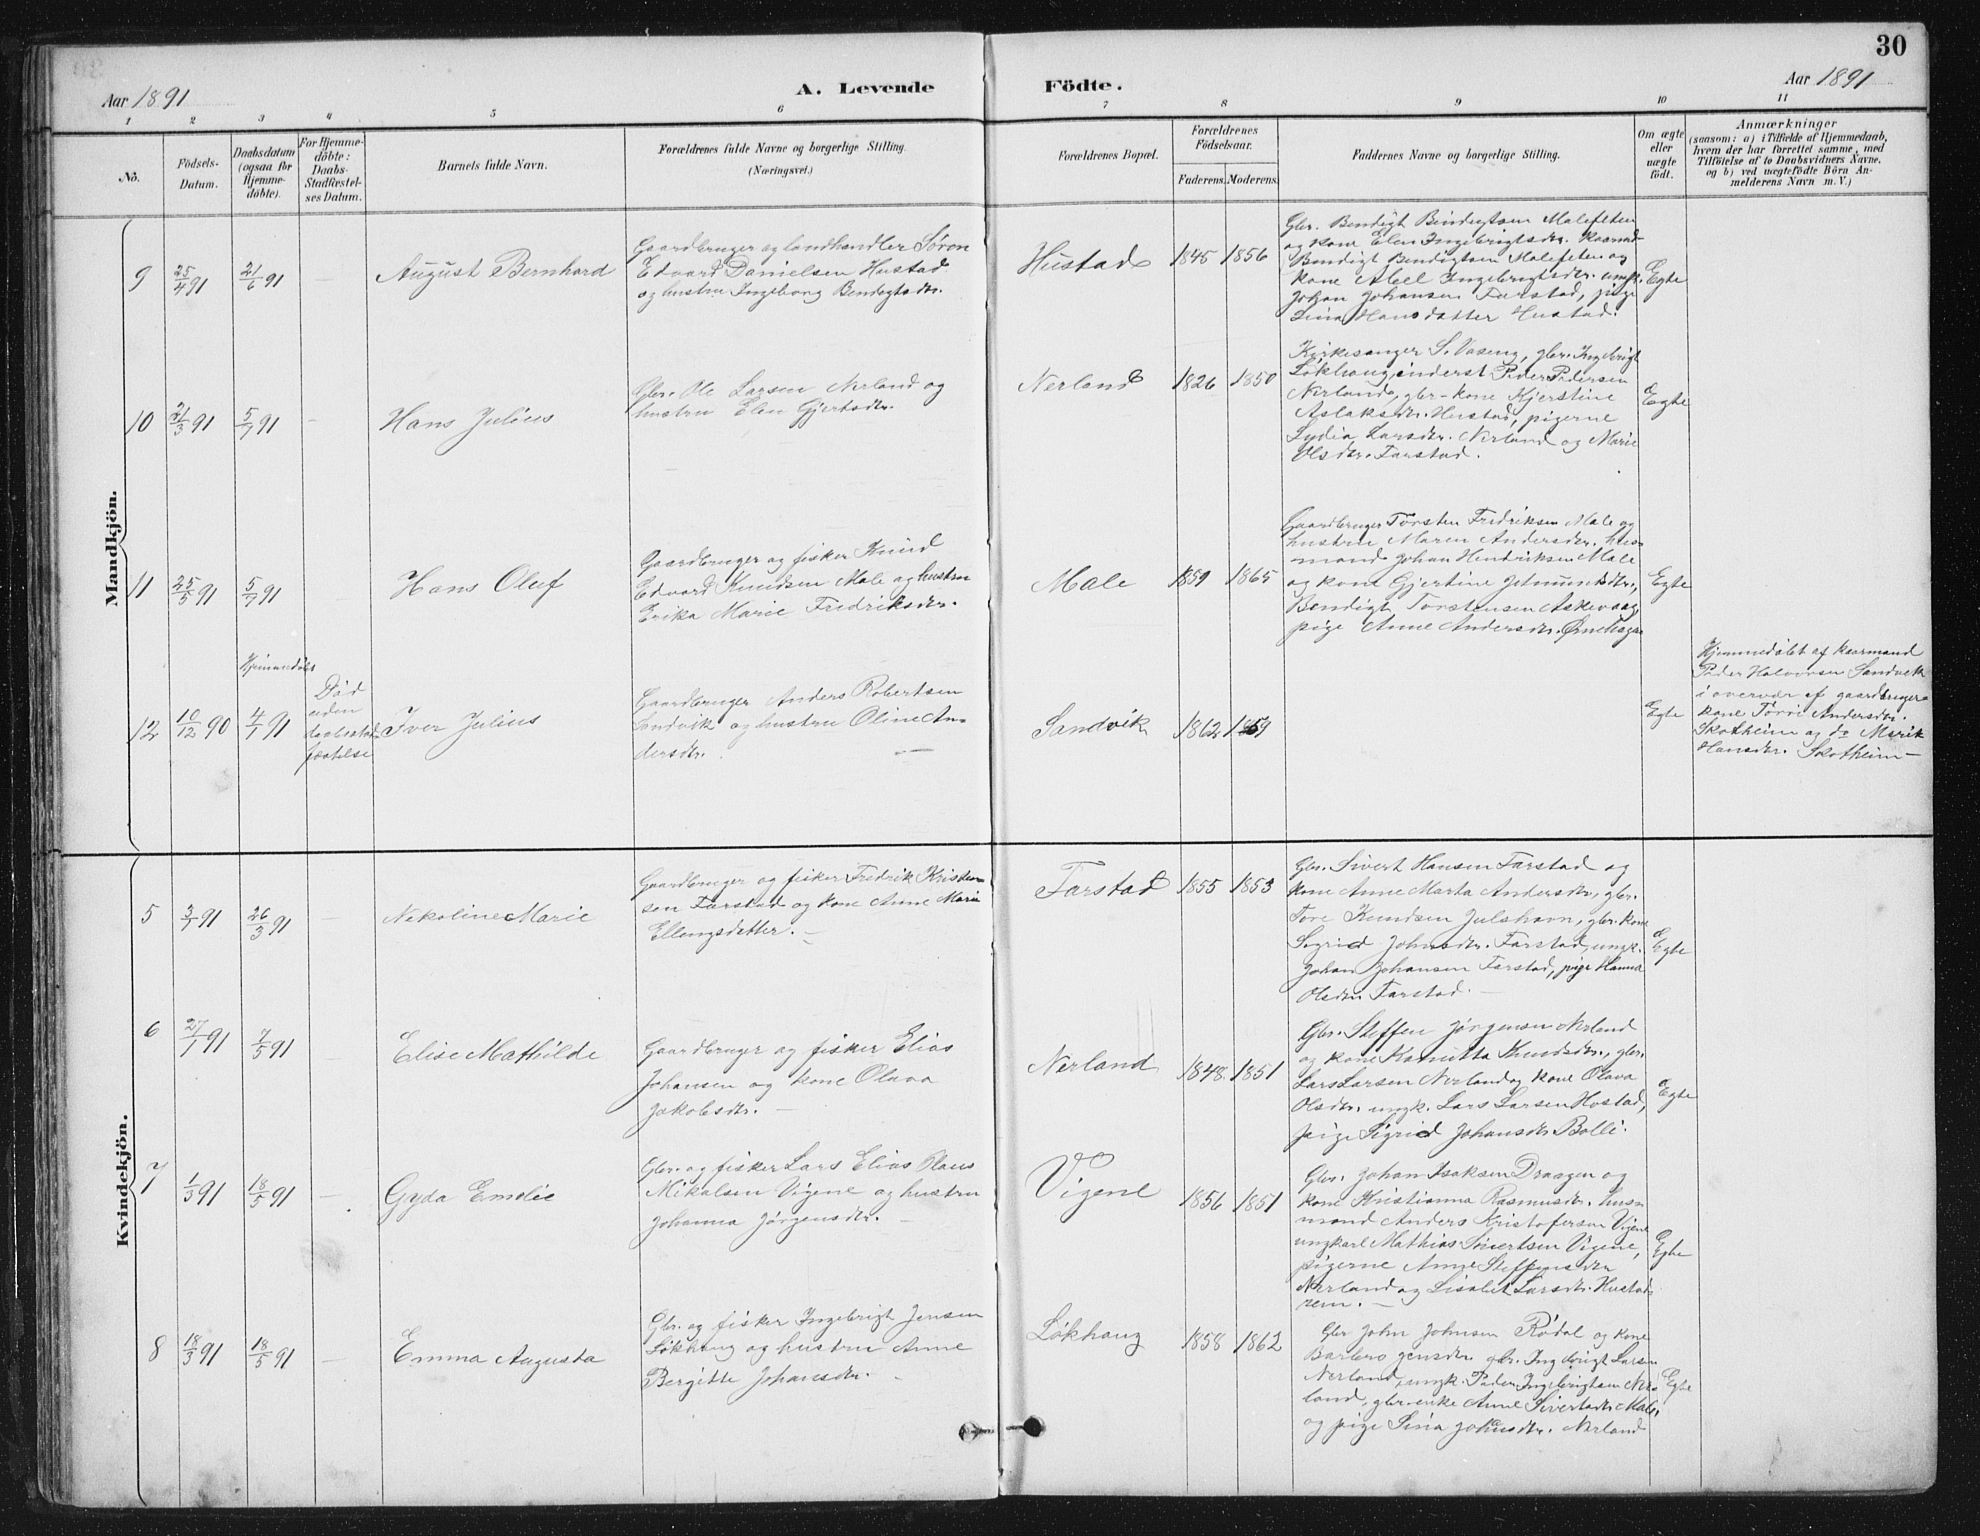 30
Aar 1891
A. Levende
Födte.
Aar 1891
1 2 3 4 5 6 7 8 9 10 11
No.
Födsels-
Datum.
Daabsdatum
(ogsaa for
Hjemme-
döbte).
For Hjemme-
döbte:
Daabs-
Stadfæstel-
ses Datum.
Barnets fulde Navn.
Forældrenes fulde Navne og borgerlige Stilling.
(Næringsvei.)
Forældrenes Bopæl.
Forældrenes
Födselsaar.
Faderens. Moderens.
Faddernes Navne og borgerlige Stilling.
Om ægte
eller
uægte
født.
Anmærkninger
(saasom: a) i Tilfælde af Hjemmedaab,
hvem der har forrettet samme, med
Tilföielse af to Daabsvidners Navne,
og b) ved uægtefödte Börn An-
melderens Navn m. V.)
Mandkjön.
9
25/4 91
21/6 91
August Bernhard
Gaardbruger og landhandler Søren
Edvard Danielsen Hustad
og hustru Ingeborg Bendigtsdtr.
Hustad
1845
1856
Gbr. Bendigt Bendigtsen Malefeten
og kone Elen Ingebrigtsdtr. kaarmd.
Bendigt Bendigtsen Malefeten og
kone Abel Ingebrigtsdtr. ungk.
Johan Johansen Farstad, pige
Lina Hansdatter Hustad.
Egte
10
21/3 91
5/7 91
Hans Julius
Gbr. Ole Larsen Nerland og
hustru Elen Gjertsdtr.
Nerland
1826
1850
Kirkesanger S. Vaseng, gbr. Ingebrigt
Løkhaug, inderst Peder Pedersen
Nerland, gbr-kone Kjerstine
Aslaksdtr. Hustad, pigerne
Lydia Larsdtr. Nerland og Marie
Olsdtr. Farstad.
Egte
11
25/5 91
5/7 91
Hans Oluf
Gaardbruger og fisker Knud
Edvard Knudsen Male og hustru
Erika Marie Fredriksdtr.
Male
1859
1865
Gaardbruger Torsten Fredriksen Male og
hustru Maren Andersdtr. hus-
mand Johan Hendriksen Male
og kone Gjertine Jetmundsdtr.,
Bendigt Torstensen Askevaag,
pige Anne Andersdtr.
Egte
12
10/12 90
Hjemmedøbt
4/1 91
Død
uden
daabsstad-
fæstelse
Iver Julius
Gaardbruger Anders Robertsen
Sandvik og hustru Oline An-
dersdtr.
Sandvik
1862
1859
Egte
Hjemmedøbt af kaarmand
Peder Halvorsen Sandvik
i overvær af gaardbruger-
kone Andersdtr.
Skotheim og do Marik
Hansdtr. Skotheim
Kvindekjön.
5
3/1 91
26/3 91
Nikoline Marie
Gaardbruger og fisker Fredrik Kristen-
sen Farstad og kone Anne Marie
Ellengsdatter.
Farstad
1855
1853
Gbr. Sivert Hansen Farstad og
kone Anne Marta Andersdtr, gbr.
Tore Knudsen Julshavn, gbr. kone
Sigrid Johnsdtr. Farstad, ungk.
Johan Johansen Farstad, pige Hanna
Olsdtr Farstad.
Egte
6
27/1 91
7/5 91
Elise Mathilde
Gaardbruger og fisker Elias
Johansen og kone Olava
Jakobsdtr.
Nerland
1848
1851
Gbr. Steffen Jørgensen Nerland
og kone Knudsdtr., gbr.
Lars Larsen Nerland og kone Olava
Olsdtr. ungk. Lars Larsen Hostad,
pige Sigrid Johansdtr Bolli.
Egte
7
1/3 91
18/5 91
Gyda Emelie
Gbr. og fisker Lars Elias Claus
Mikalsen Vigene og hustru
Johanna Jørgensdtr.
Vigene
1856
1851
Gbr. Johan Isaksen Draagen og
kone Kristianna Rasmusdtr. hus-
mand Anders Kristofersen Vigene
ungkarl Mathias Sivertsen Vigene,
pigerne Anne Steffensdtr
Nerland og Lisabet Larsdtr. Hustad-
nem.
Egte
8
18/3 91
18/5 91
Emma Augusta
Gbr. og fisker Ingebrigt Jensen
Løkhaug og hustru Anne
Bergitte Johansdtr.
Løkhaug
1858
1862
Gbr John Johnsen Rødal og kone
Barbro gbr. Ingebrigt Larsen
Nerland, ungk. Peder Ingebrigtsen Ner-
land, gbr-enke Anne Sivertsdtr Male,
og pige Sina Johnsdtr. Nerland
Egte